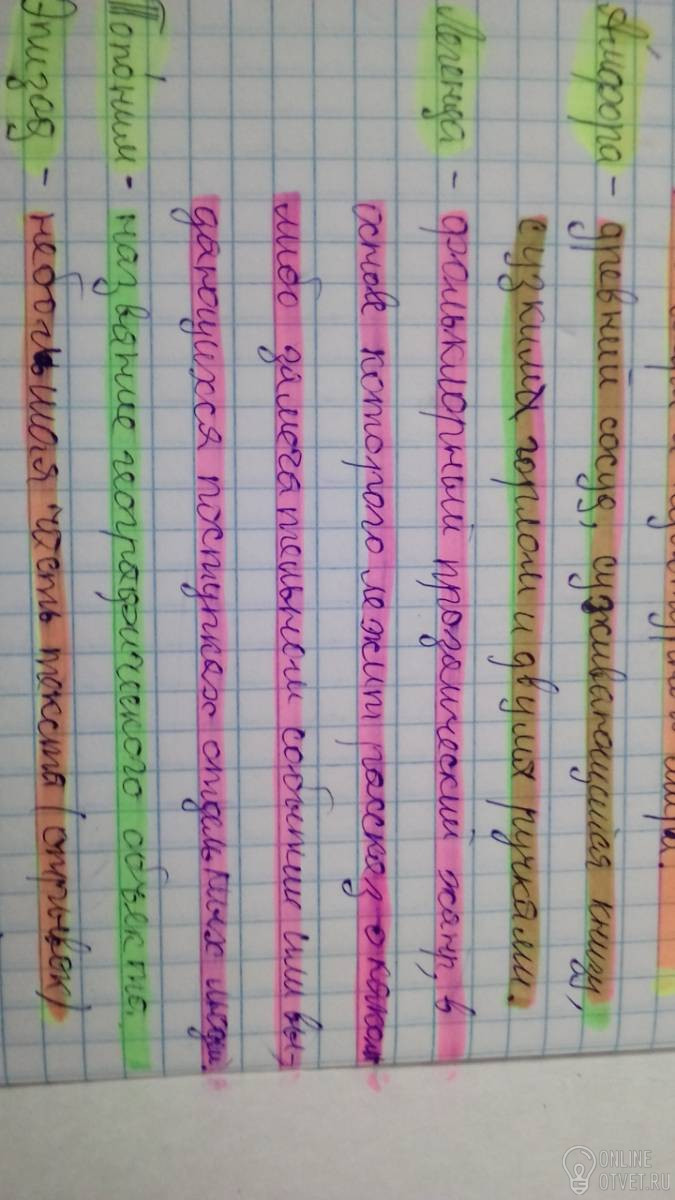 мира.
Амфора - древний сосуд, суживающийся книзу,
с узким горлом и двумя ручками.
Легенда - фольклорный прозаический жанр, в
основе которого лежит рассказ о каком-
либо замечательном событии или вы-
дающихся поступках отдельных людей.
Топоним - название географического объекта.
Эпизод - небольшая часть текста (отрывок)
ONLINE
OTVET.RU